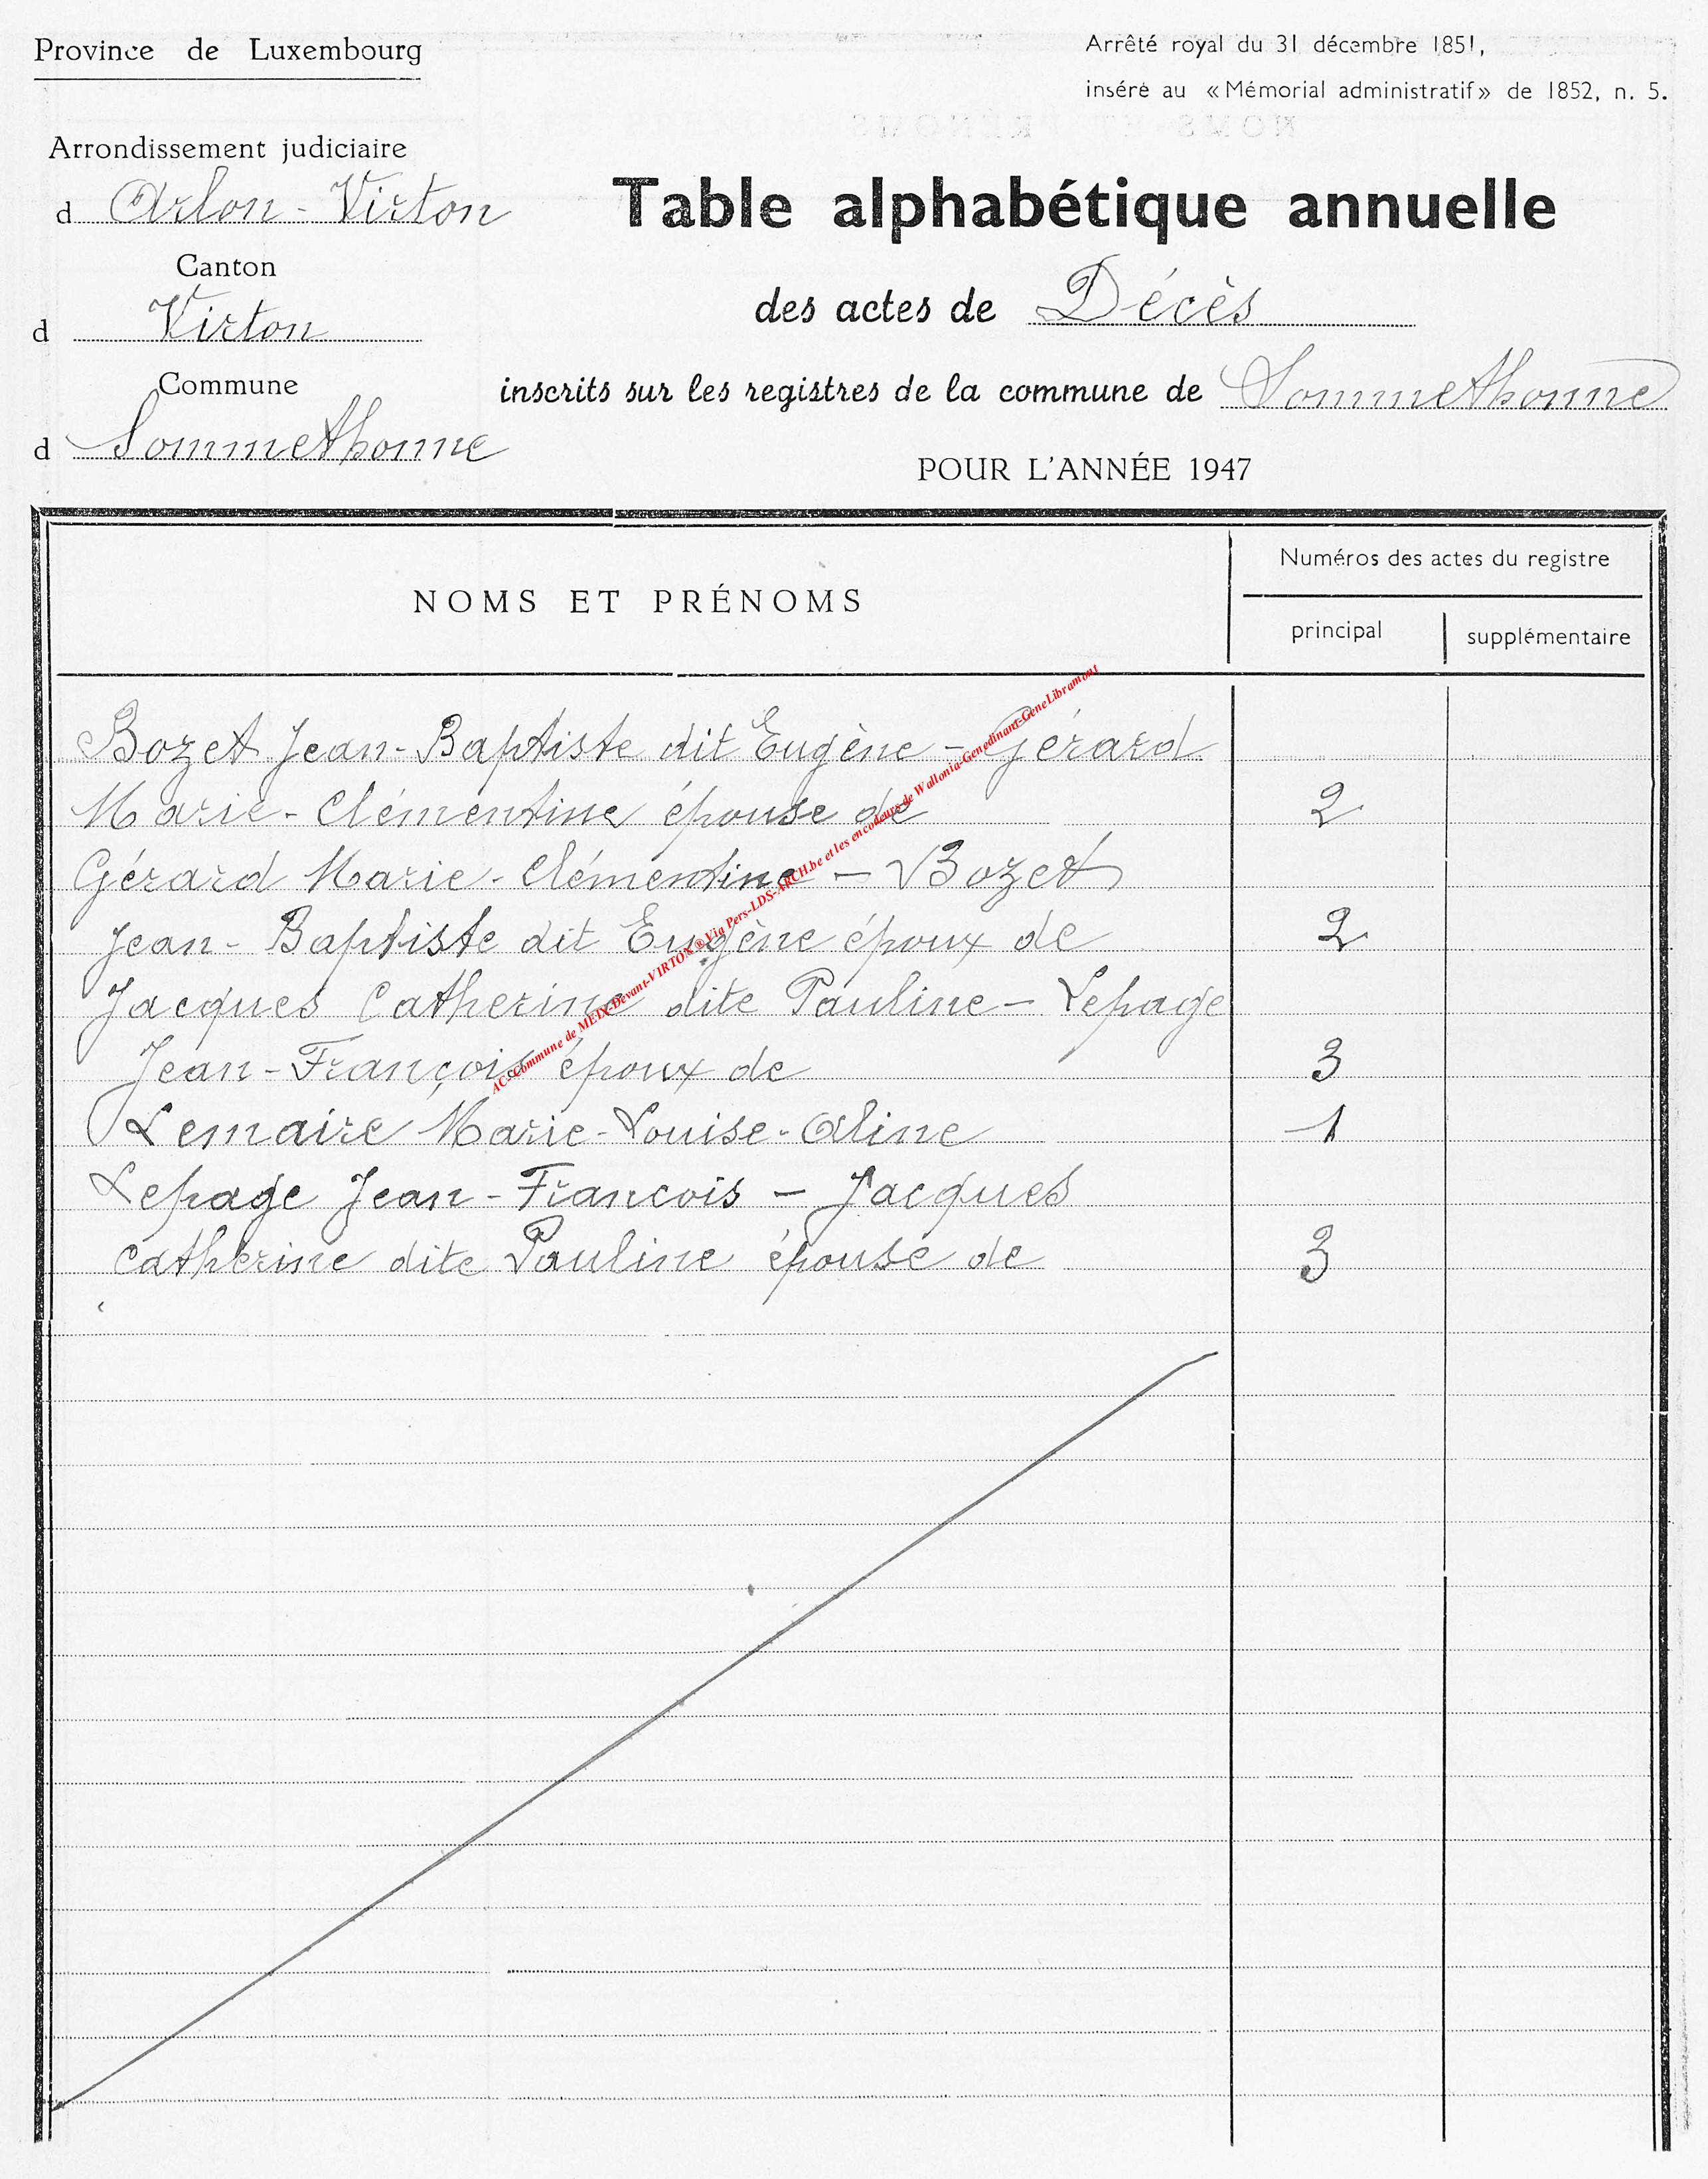 Province de Luxembourg
Arrêté royal du 31 décembre 1851,
inséré au « Mémorial administratif » de 1852, n. 5.
Arrondissement judiciaire
d Arlon - Virton
Canton
d Virton
Commune
d Sommethonne
Table alphabétique annuelle
des actes de Décès
inscrits sur les registres de la commune de Sommethonne
POUR L'ANNÉE 1947
NOMS ET PRÉNOMS
Numéros des actes du registre
principal
supplémentaire
Bozet Jean-Baptiste dit Eugène - Gérard
Marie-Clémentine épouse de 2
Gérard Marie-Clémentine - Bozet
Jean-Baptiste dit Eugène époux de 2
Jacques Catherine dite Pauline - Lepage
Jean-François époux de 3
Lemaire Marie-Louise-Aline 1
Lepage Jean-Francois - Jacques
Catherine dite Pauline épouse de 3
AC-Commune de MEIX-Devant-VIRTON ® Via Pers-LDS-ARCH.be et les encodeurs de Wallonia-Genedinant-GeneLibramont